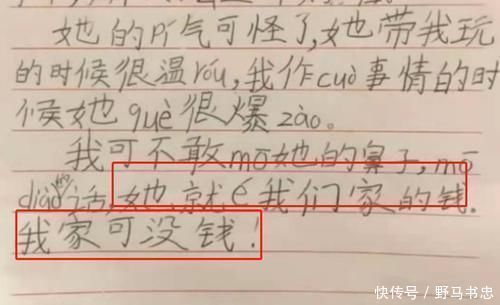 她的pí气可怪了,她带我玩
的时候很温róu,我作cuò事情的时
候她què很爆zào。
我可不敢mō她的鼻子,mō
diào的话,她就é我们家的钱.
我家可没钱!
快传号/野马书忠